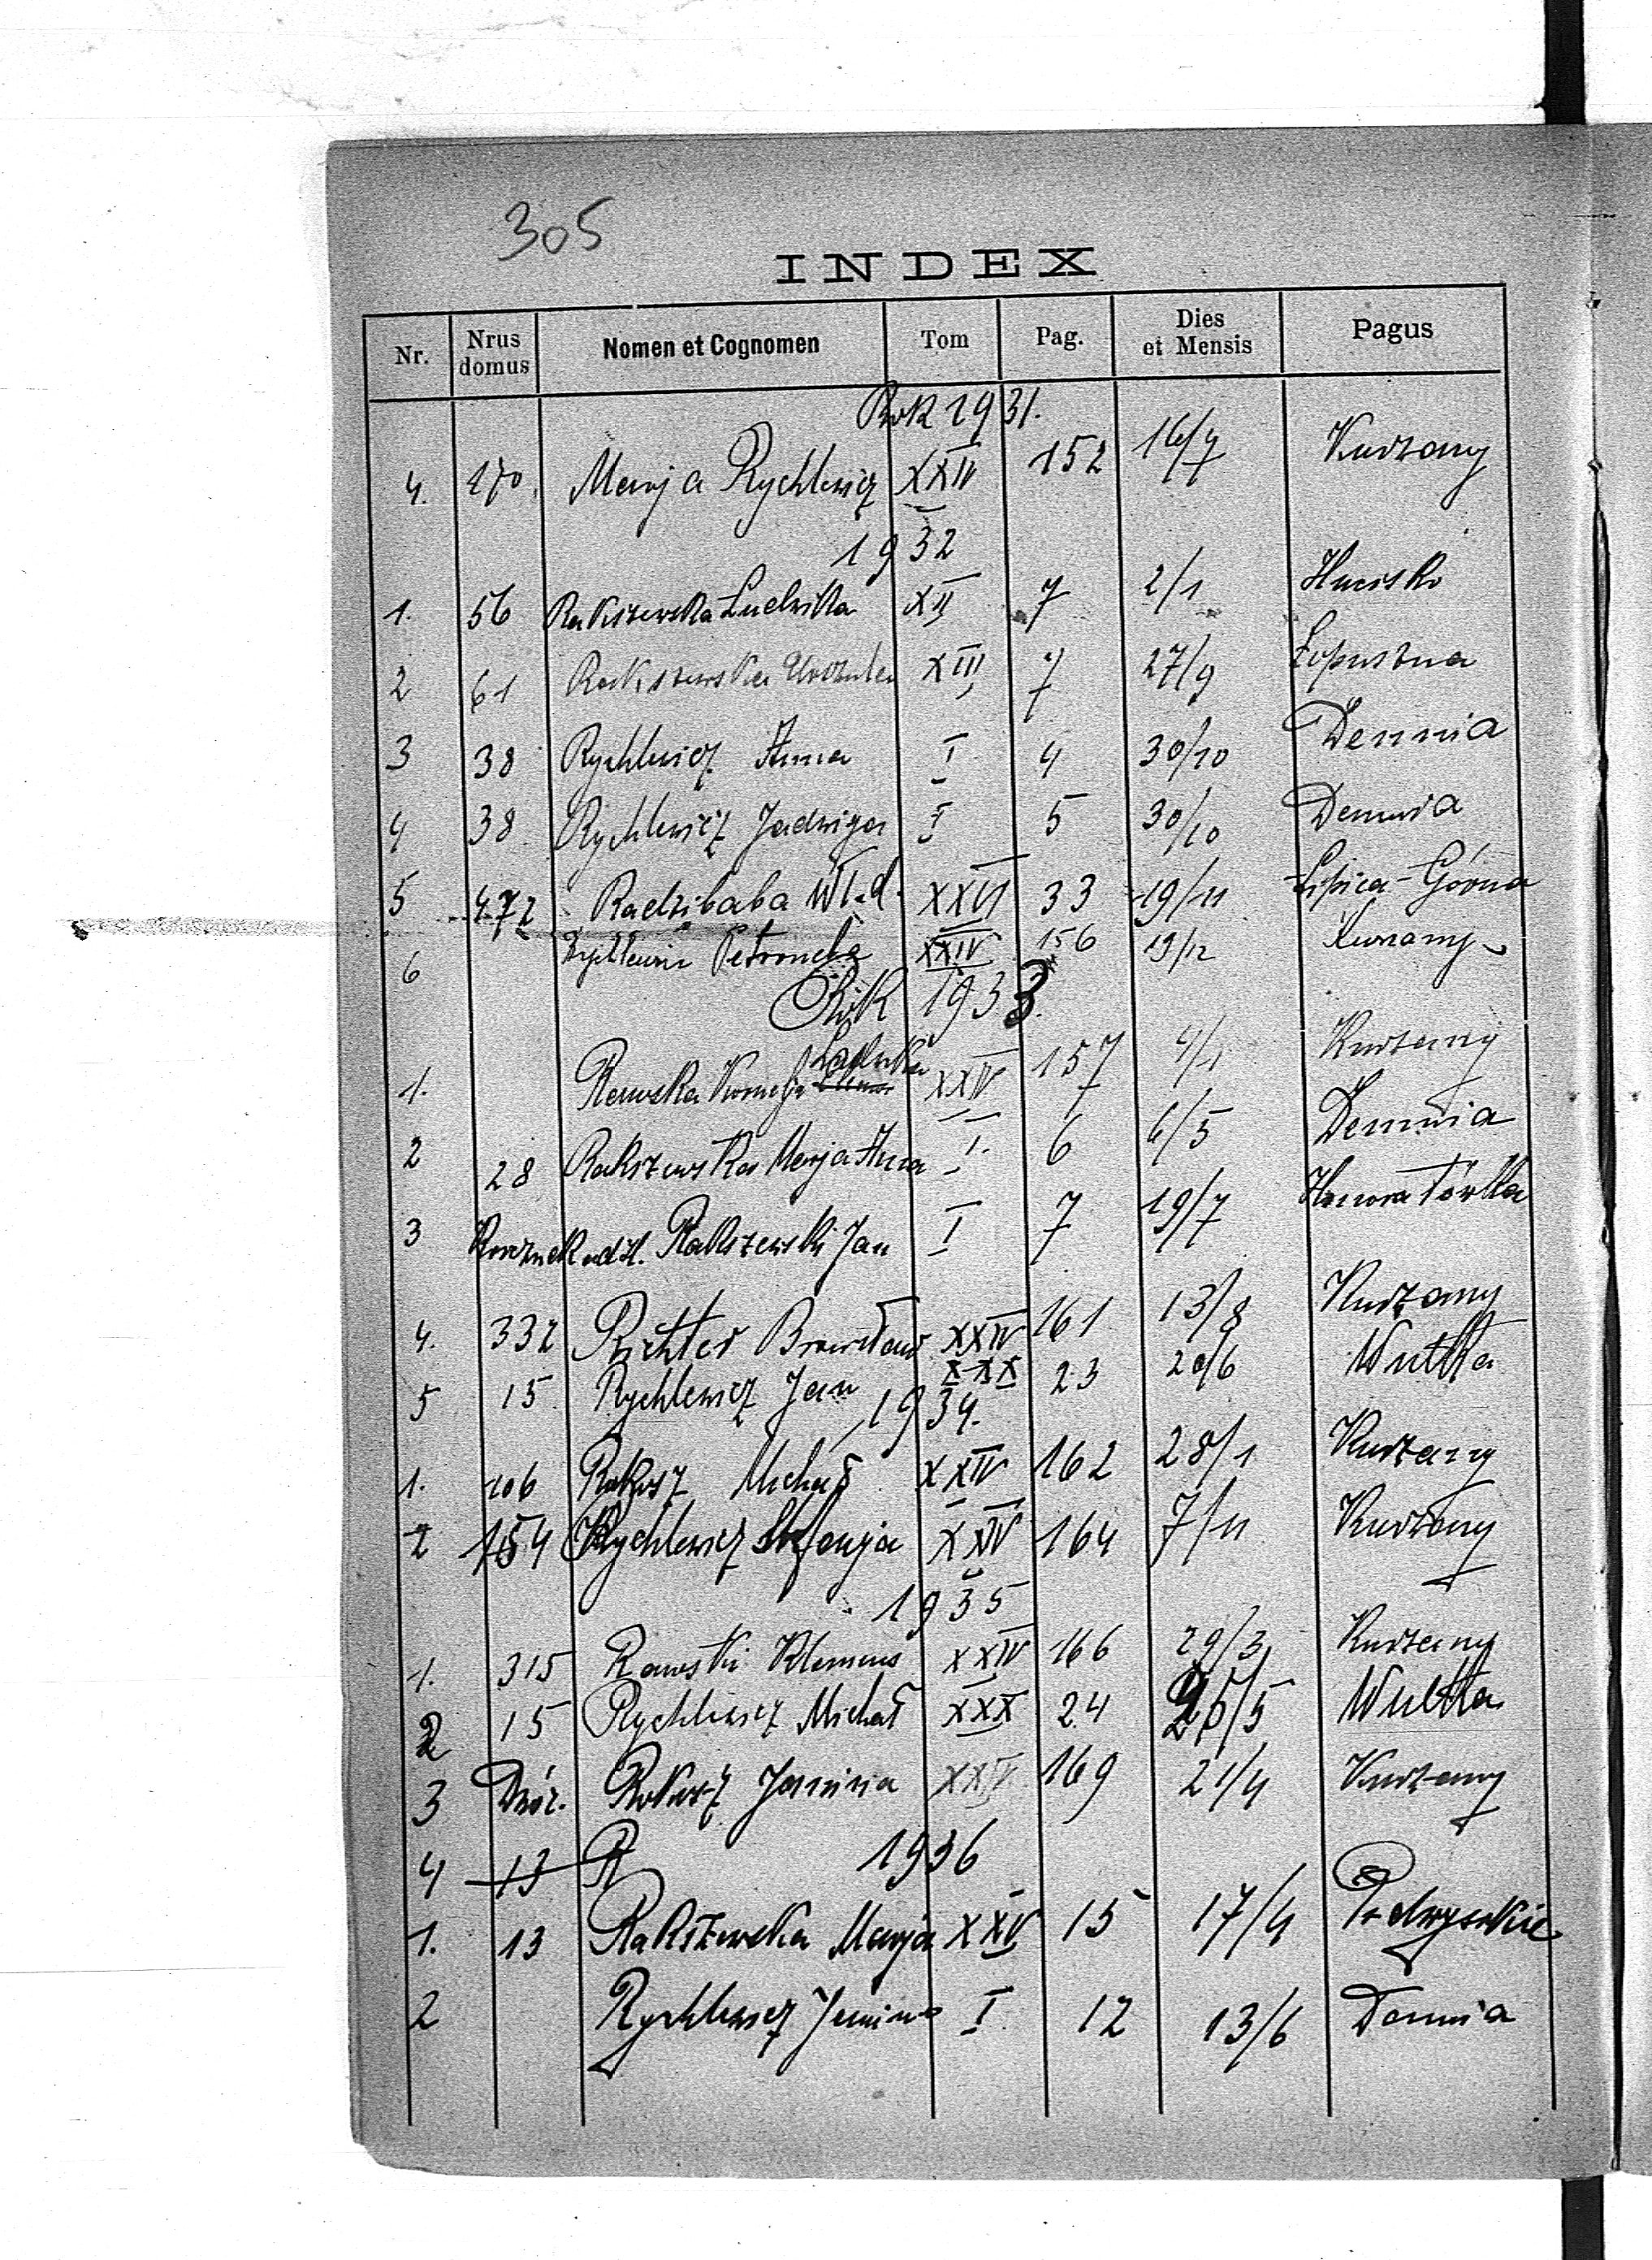 305
INDEX
Nr. Nrus domus Nomen et Cognomen Tom Pag. Dies et Mensis Pagus
Rok 1931.
4. 170. Marja Rychlewicz XXIV 152 16/7 Kurzany
1932
1. 56 Rakszewska Ludwika XII 7 2/1 Hucisko
2 61 Rakszewska Urszula XIII 7 27/9 Łopuszna
3 38 Rychlewicz Anna I 4 30/10 Demnia
4 38 Rychlewicz Jadwiga I 5 30/10 Demnia
5 472 Radzibaba Wład. XXVI 33 19/11 Lipica-Górna
6 Rychlewicz Petronela XXIV 156 19/12 Kurzany
Rok 1933.
Ludwika
1. Rawska Kornelja XXIV 157 4/1 Kurzany
2 28 Rakszewska Marja Anna I 6 6/5 Demnia
3 Rakszewski Jan I 7 19/7
4. 332 Richter Bronisław XXIV 161 13/8 Kurzany
5 15 Rychlewicz Jan XXX 23 20/6 Wulka
1934.
1. 106 Rokosz Michał XXIV 162 28/1 Kurzany
2 154 Rychlewicz Stefanja XXIV 164 7/11 Kurzany
1935
1. 315 Rawski Klemens XXIV 166 29/3 Kurzany
2 15 Rychlewicz Michał XXX 24 /5 Wulka
3 Dwór. Rokosz Janina XXIV 169 21/4 Kurzany
4 13 R 1936
1. 13 Rakszewska Marja XXV 15 17/4 Podwysokie
2 Rychlewicz Janina I 12 13/6 Demnia